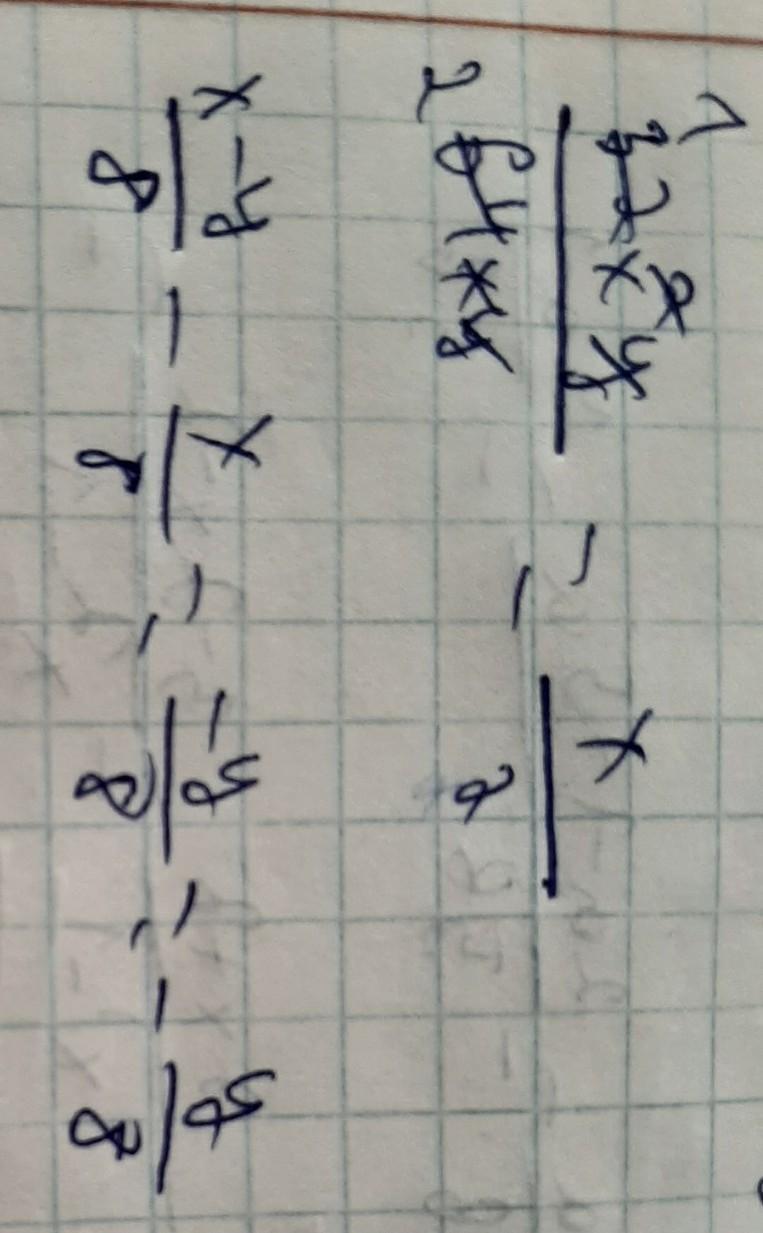 1
32x²y / 64xy = x / 2
2
(x-y) / 8 - x / 8 = -y / 8 = - y / 8